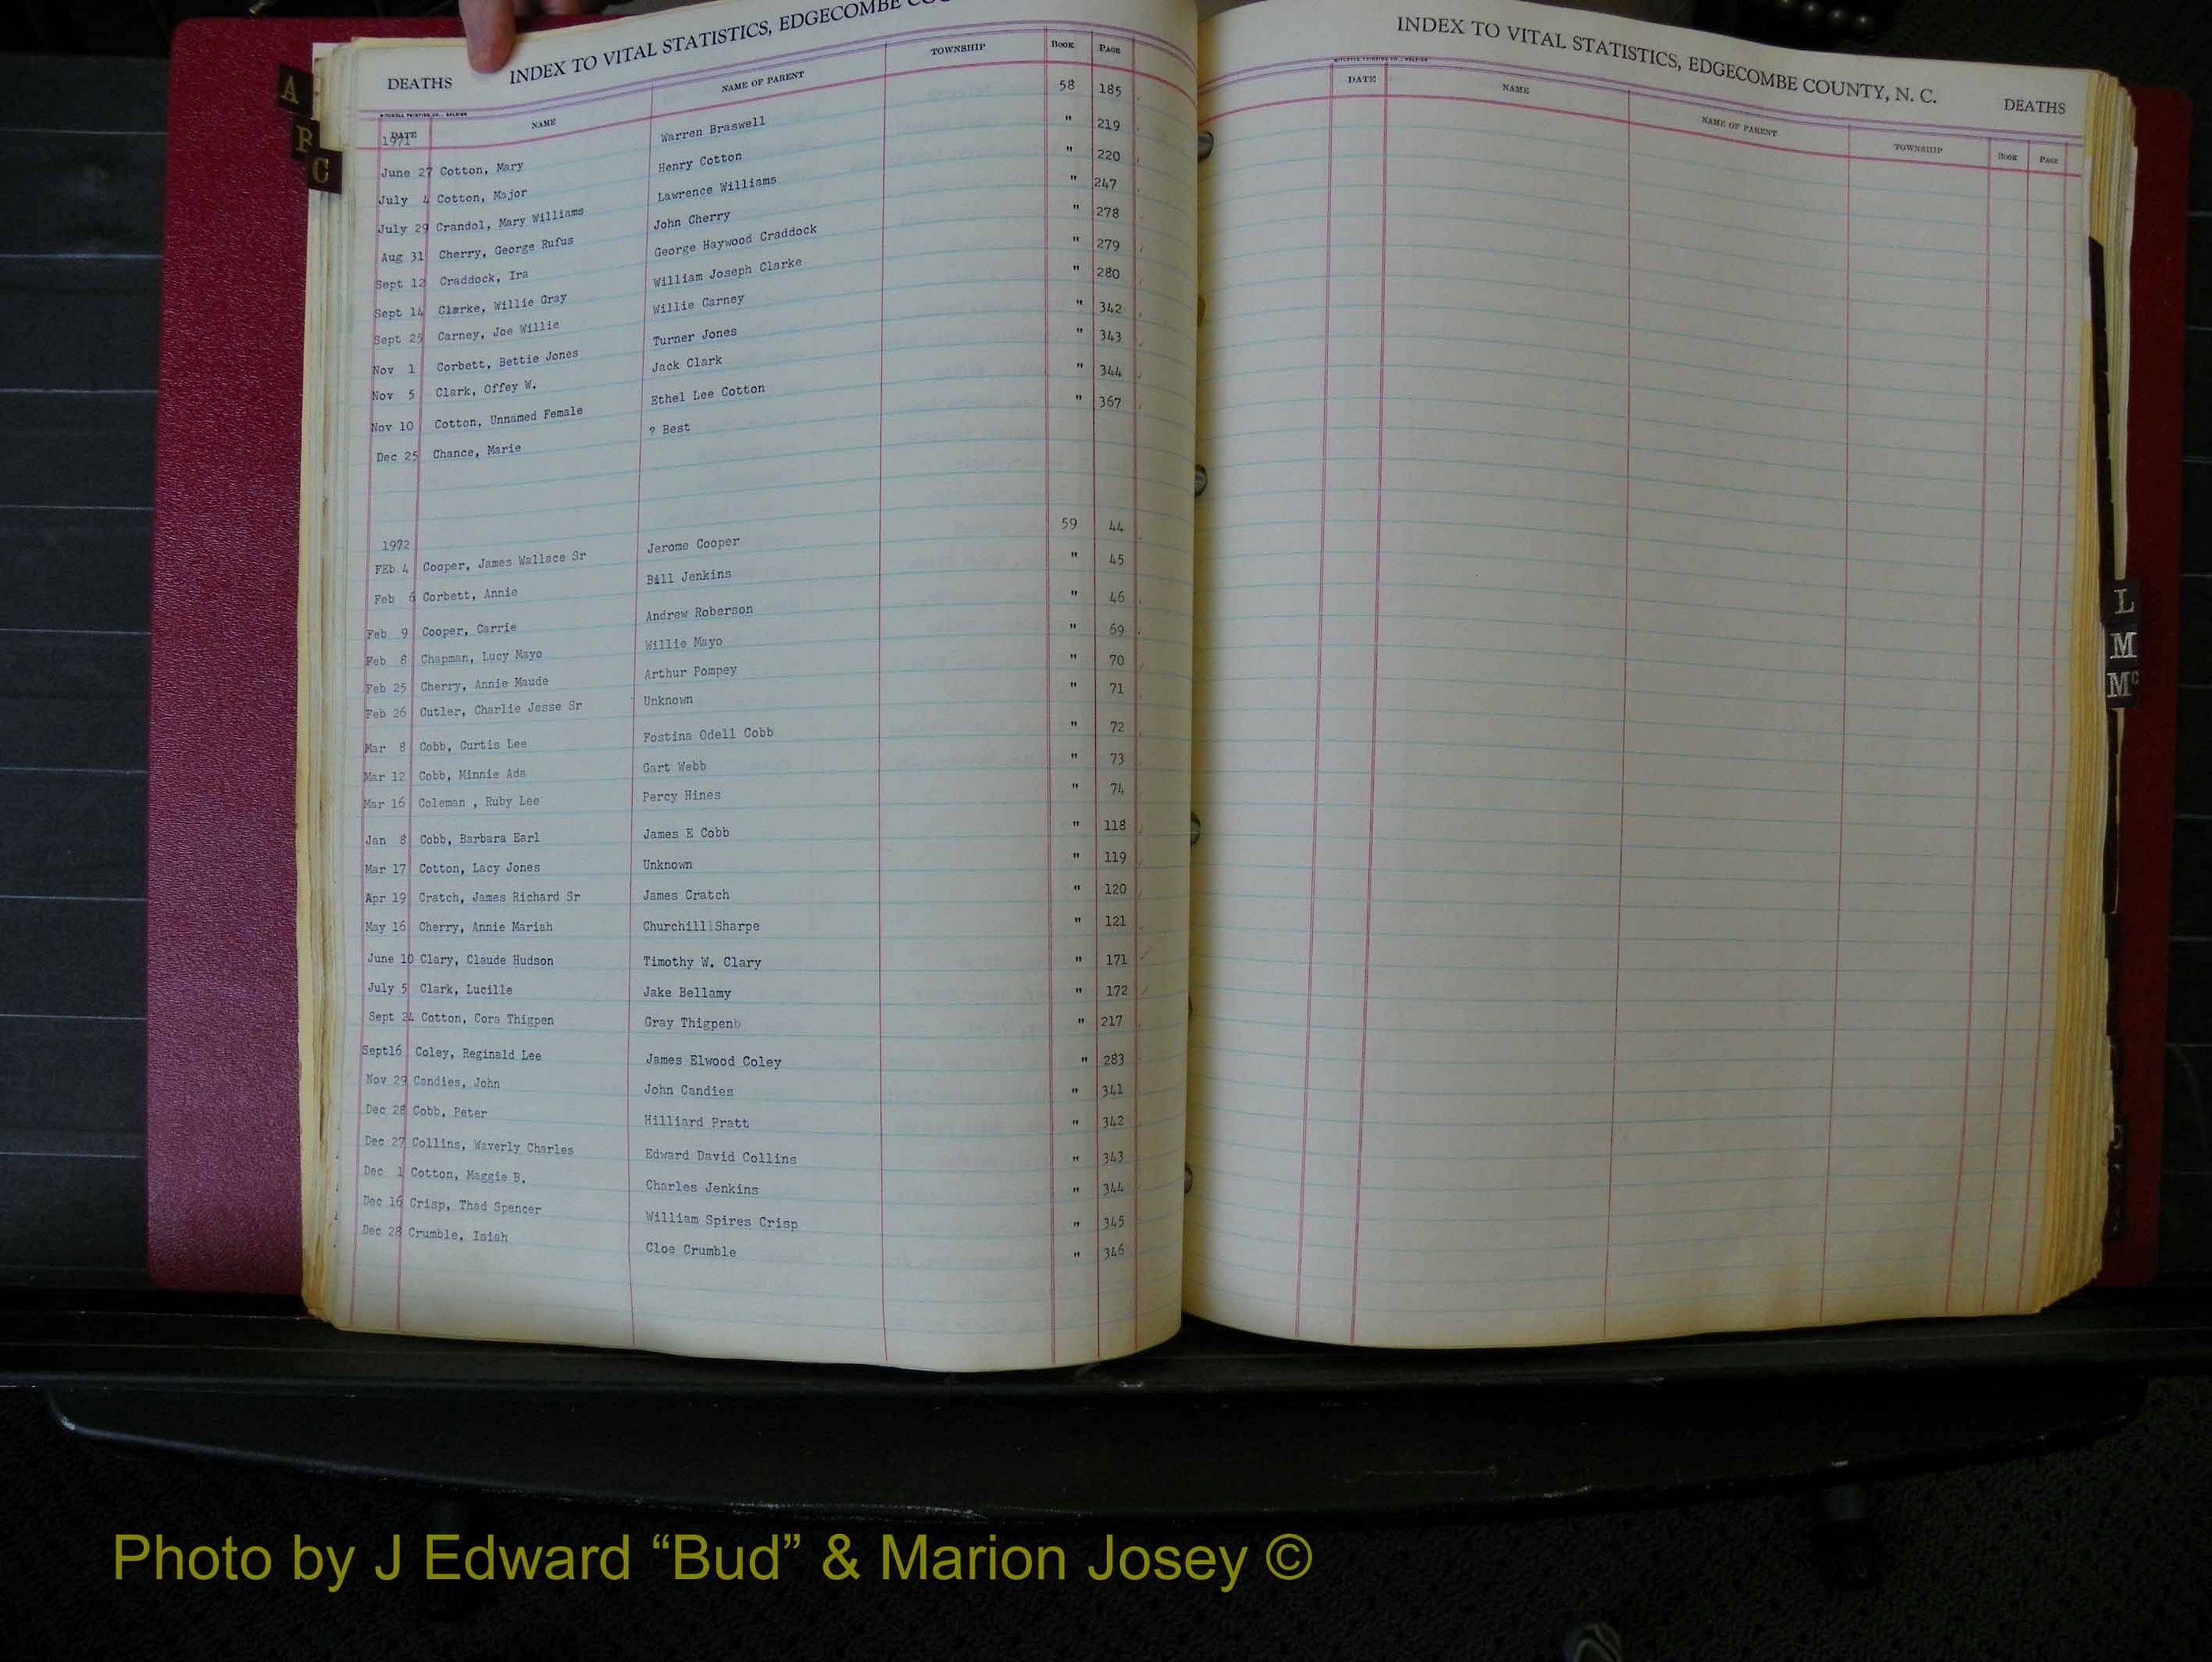 DEATHS INDEX TO VITAL STATISTICS, EDGECOMBE
DATE NAME NAME OF PARENT TOWNSHIP BOOK PAGE
1971
June 27 Cotton, Mary Warren Braswell 58 185
July 4 Cotton, Major Henry Cotton " 219
July 29 Crandol, Mary Williams Lawrence Williams " 220
Aug 31 Cherry, George Rufus John Cherry " 247
Sept 12 Craddock, Ira George Haywood Craddock " 278
Sept 14 Clarke, Willie Gray William Joseph Clarke " 279
Sept 25 Carney, Joe Willie Willie Carney " 280
Nov 1 Corbett, Bettie Jones Turner Jones " 342
Nov 5 Clark, Offey W. Jack Clark " 343
Nov 10 Cotton, Unnamed Female Ethel Lee Cotton " 344
Dec 25 Chance, Marie ? Best " 367
1972
FEb 4 Cooper, James Wallace Sr Jerome Cooper 59 44
Feb 6 Corbett, Annie Bill Jenkins " 45
Feb 9 Cooper, Carrie Andrew Roberson " 46
Feb 8 Chapman, Lucy Mayo Willie Mayo " 69
Feb 25 Cherry, Annie Maude Arthur Pompey " 70
Feb 26 Cutler, Charlie Jesse Sr Unknown " 71
Mar 8 Cobb, Curtis Lee Fostina Odell Cobb " 72
Mar 12 Cobb, Minnie Ada Gart Webb " 73
Mar 16 Coleman , Ruby Lee Percy Hines " 74
Jan 8 Cobb, Barbara Earl James E Cobb " 118
Mar 17 Cotton, Lacy Jones Unknown " 119
Apr 19 Cratch, James Richard Sr James Cratch " 120
May 16 Cherry, Annie Mariah Churchill Sharpe " 121
June 10 Clary, Claude Hudson Timothy W. Clary " 171
July 5 Clark, Lucille Jake Bellamy " 172
Sept 24 Cotton, Cora Thigpen Gray Thigpen " 217
Sept16 Coley, Reginald Lee James Elwood Coley " 283
Nov 29 Candies, John John Candies " 341
Dec 28 Cobb, Peter Hilliard Pratt " 342
Dec 27 Collins, Waverly Charles Edward David Collins " 343
Dec 1 Cotton, Maggie B. Charles Jenkins " 344
Dec 16 Crisp, Thad Spencer William Spires Crisp " 345
Dec 28 Crumble, Isiah Cloe Crumble " 346
A
B
C
INDEX TO VITAL STATISTICS, EDGECOMBE COUNTY, N. C. DEATHS
DATE NAME NAME OF PARENT TOWNSHIP BOOK PAGE
L
M
Mc
Photo by J Edward “Bud” & Marion Josey ©